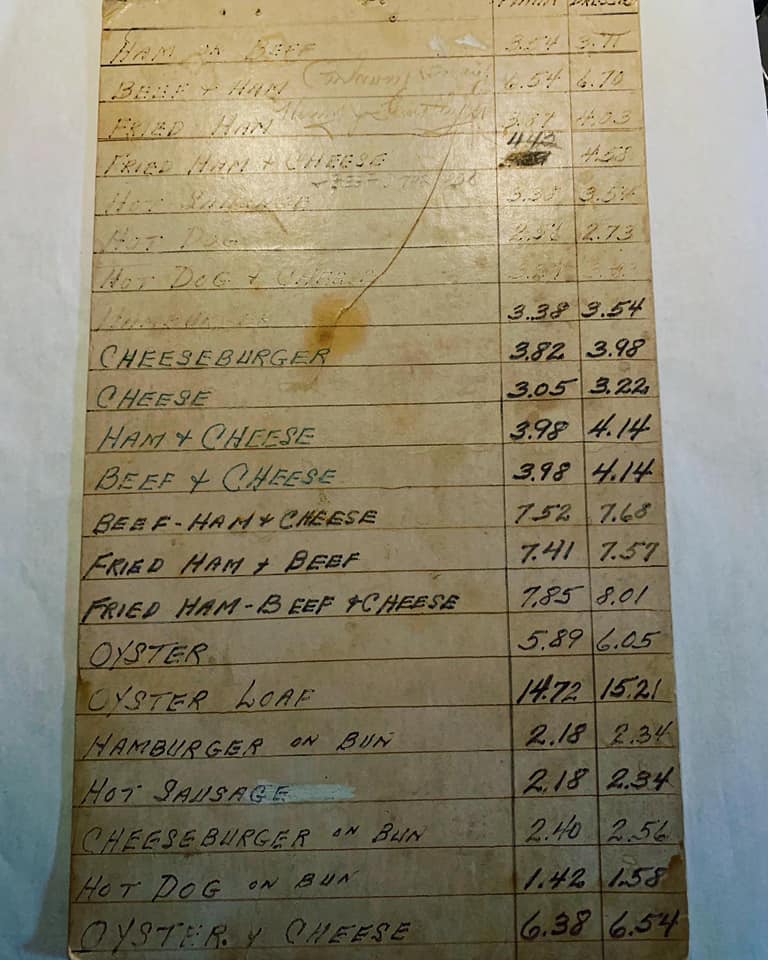 HAM OR BEEF 3.54 3.71
BEEF & HAM 6.54 6.70
FRIED HAM 3.87 4.03
FRIED HAM & CHEESE 4.42 4.58
HOT SAUSAGE 3.38 3.54
HOT DOG 2.73
HOT DOG & CHEESE
HAMBURGER 3.38 3.54
CHEESEBURGER 3.82 3.98
CHEESE 3.05 3.22
HAM & CHEESE 3.98 4.14
BEEF & CHEESE 3.98 4.14
BEEF-HAM & CHEESE 7.52 7.68
FRIED HAM & BEEF 7.41 7.57
FRIED HAM-BEEF & CHEESE 7.85 8.01
OYSTER 5.89 6.05
OYSTER LOAF 14.72 15.21
HAMBURGER ON BUN 2.18 2.34
HOT SAUSAGE 2.18 2.34
CHEESEBURGER ON BUN 2.40 2.56
HOT DOG ON BUN 1.42 1.58
OYSTER & CHEESE 6.38 6.54